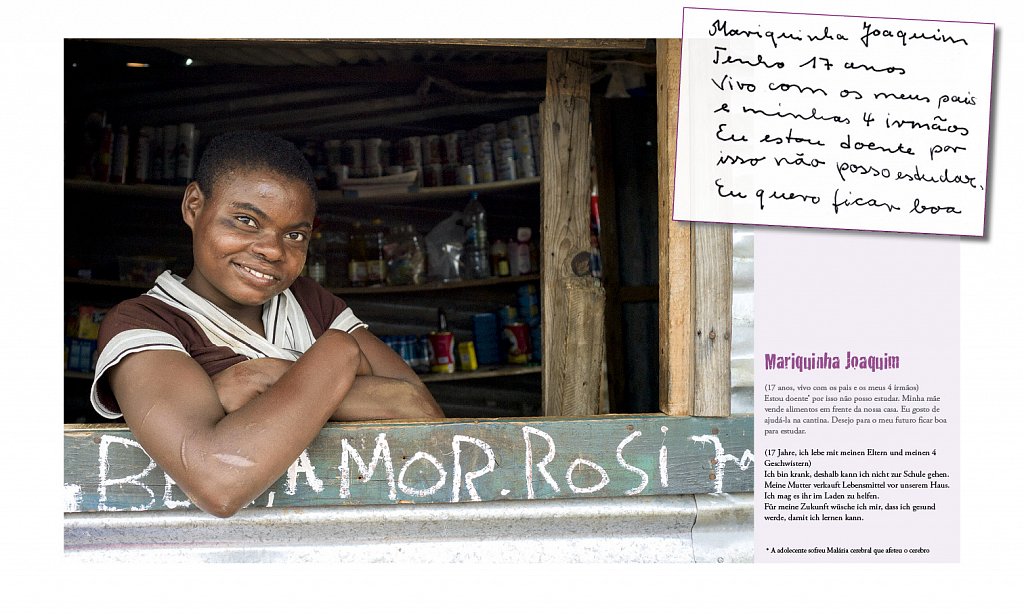 Mariquinha Joaquim
Tenho 17 anos
Vivo com os meus pais
e minhas 4 irmãos
Eu estou doente por
isso não posso estudar.
Eu quero ficar boa
AMOR.ROSI
Mariquinha Joaquim
(17 anos, vivo com os pais e os meus 4 irmãos)
Estou doente* por isso não posso estudar. Minha mãe
vende alimentos em frente da nossa casa. Eu gosto de
ajudá-la na cantina. Desejo para o meu futuro ficar boa
para estudar.
(17 Jahre, ich lebe mit meinen Eltern und meinen 4
Geschwistern)
Ich bin krank, deshalb kann ich nicht zur Schule gehen.
Meine Mutter verkauft Lebensmittel vor unserem Haus.
Ich mag es ihr im Laden zu helfen.
Für meine Zukunft wüsche ich mir, dass ich gesund
werde, damit ich lernen kann.
* A adolecente sofreu Malária cerebral que afeteu o cerebro